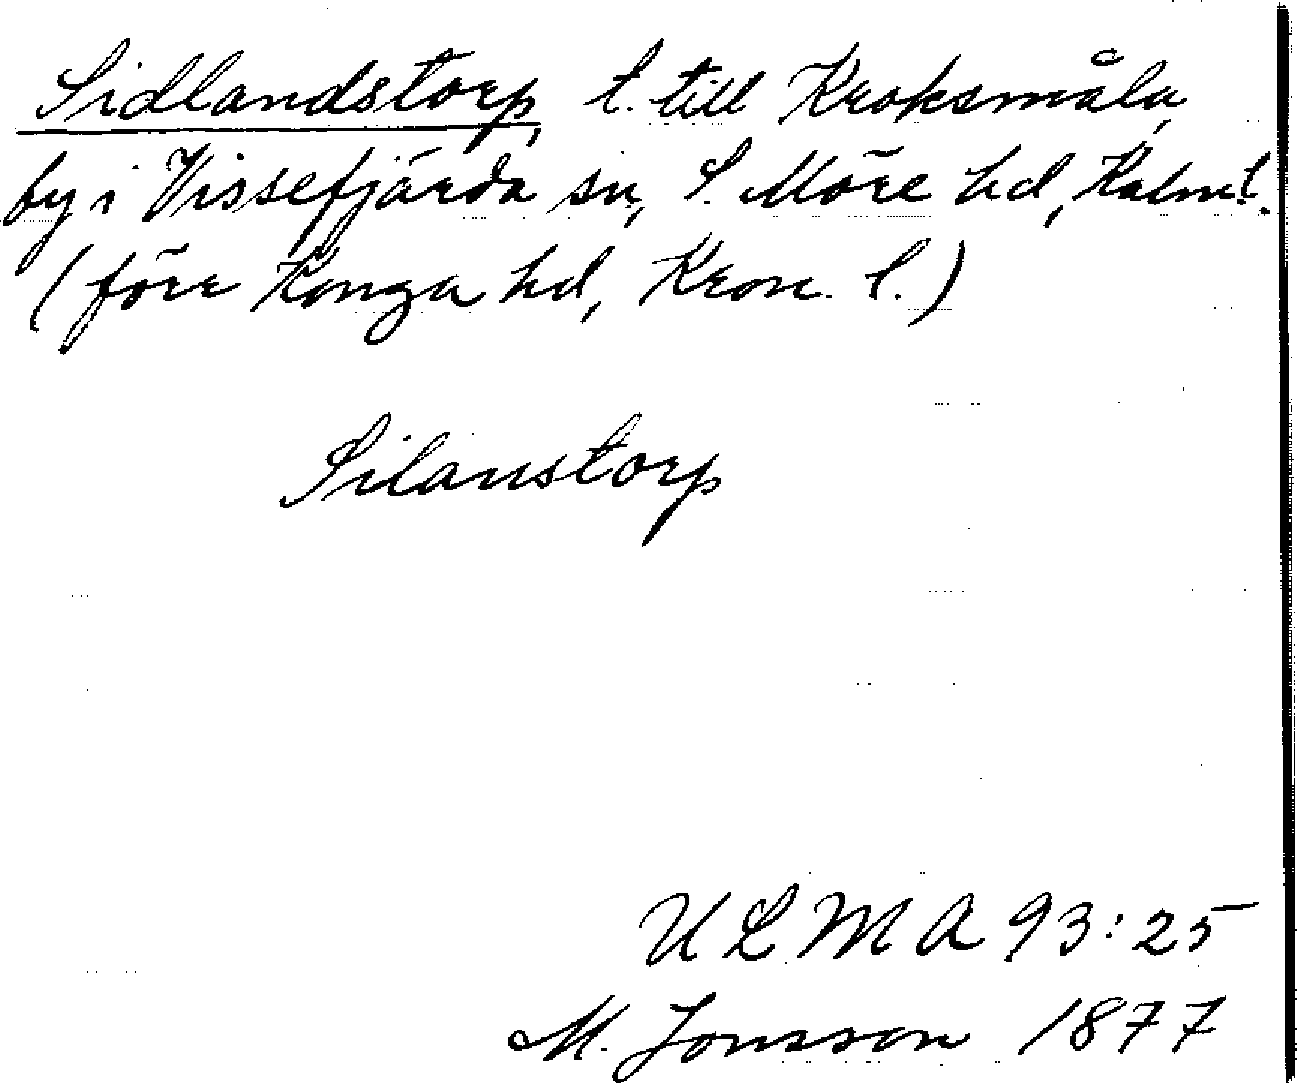 Sidlandstorp, t. till Kroksmåla,
by i Vissefjärda sn, S. Möre hd, Kalm.l.
(förr Konga hd, Kron. l.)
Silanstorp
ULMA 93:25
M. Jonsson 1877